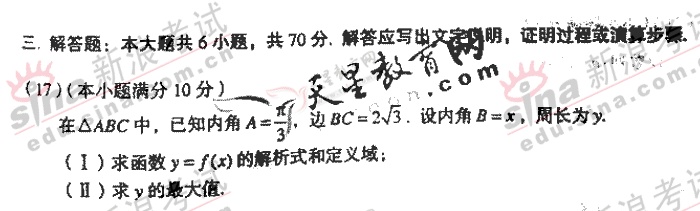 三. 解答题：本大题共6小题，共70分. 解答应写出文字说明，证明过程或演算步骤.
(17)(本小题满分10分)
在△ABC中，已知内角A=π/3，边BC=2√3. 设内角B=x，周长为y.
(Ⅰ)求函数y=f(x)的解析式和定义域；
(Ⅱ)求y的最大值.
天星教育网
.com
sina 新浪考试
edu.sina.com.cn